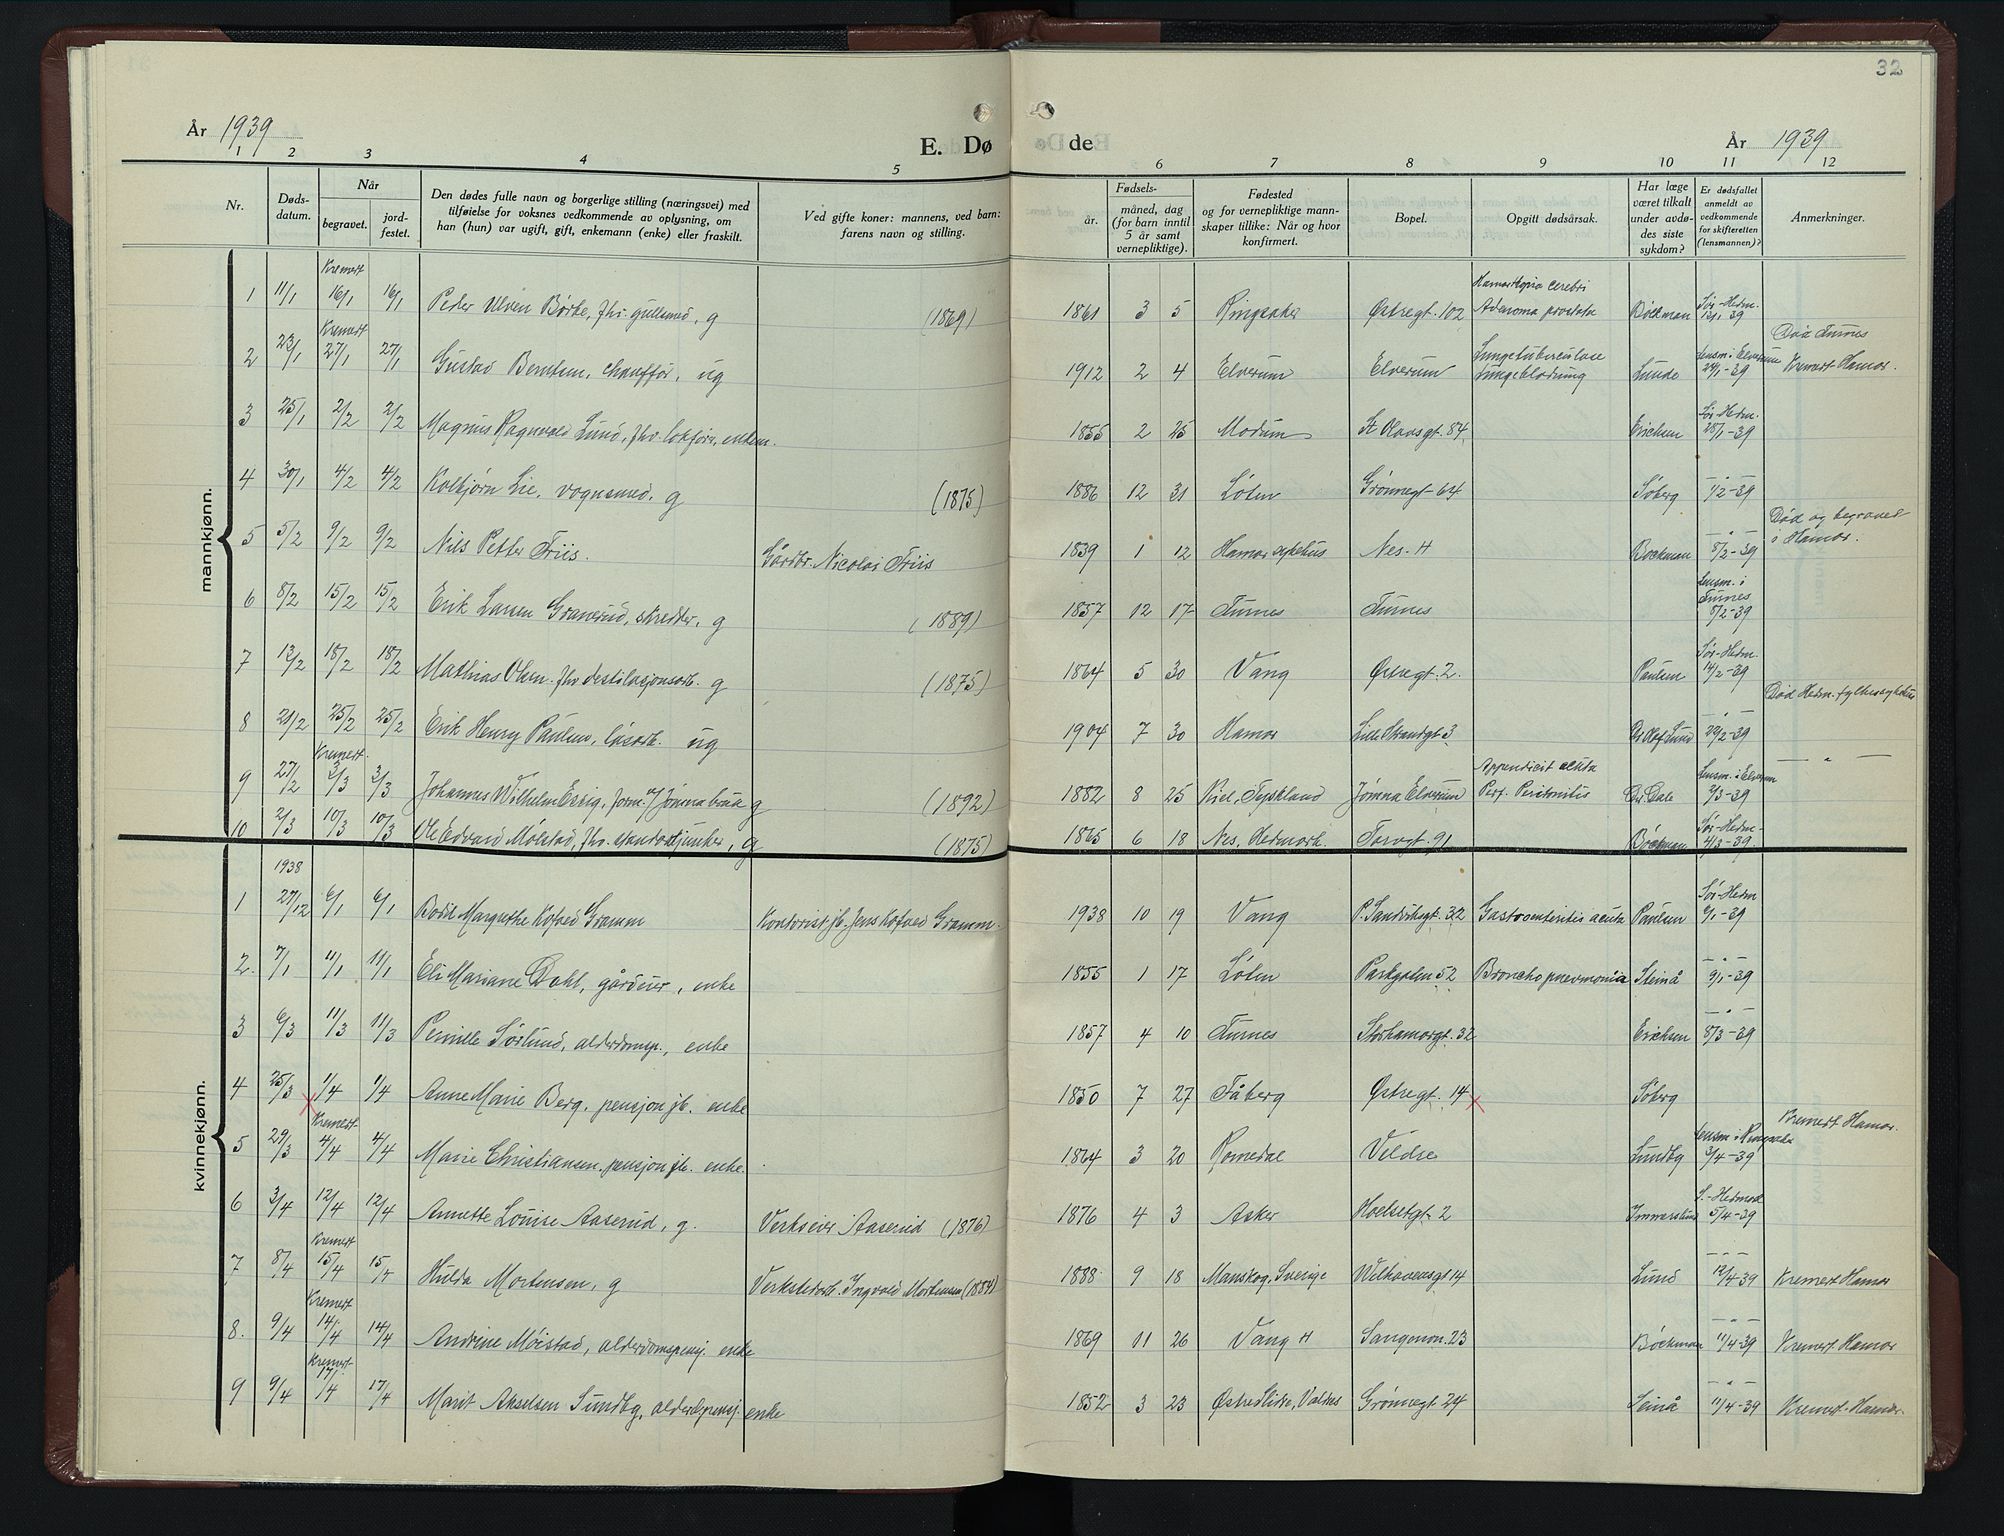 32
År 1939
E. Døde
År 1939
1 2 3 4 5 6 7 8 9 10 11 12
Nr.
Døds-
datum.
Når
begravet.
jord-
festet.
Den dødes fulle navn og borgerlige stilling (næringsvei) med
tilføielse for voksnes vedkommende av oplysning, om
han (hun) var ugift, gift, enkemann (enke) eller fraskilt.
Ved gifte koner: mannens, ved barn:
farens navn og stilling.
Fødsels-
år.
måned, dag
(for barn inntil
5 år samt
vernepliktige).
Fødested
og for vernepliktige mann-
skaper tillike: Når og hvor
konfirmert.
Bopel.
Opgitt dødsårsak.
Har læge
været tilkalt
under avdø-
des siste
sykdom?
Er dødsfallet
anmeldt av
vedkommende
for skifteretten
(lensmannen)?
Anmerkninger.
mannkjønn.
1 11/1 Kremert 16/1 16/1 Peder Ulven Børke, fhv. gullsmed, g (1869) 1861 3 5 Ringsaker Østregt. 102 cerebri Adenoma prostata Böckman Sør-Hedm. 12/1 39
2 23/1 Kremert 27/1 27/1 Gustav Berntsen, chauffør, ug 1912 2 4 Elverum Elverum Lungetuberculose Lungeblødning Lunde Lensm. i Elverum 24/1-39 Død Furnes Kremert Hamar.
3 25/1 2/2 2/2 Magnus Ragnvald Lund, fhv. lokfører, enkem. 1855 2 25 Modum St. Olavsgt. 84 Erichsen Sør-Hedm. 28/1-39
4 30/1 4/2 4/2 Kolbjørn Lie, vognsmed, g (1875) 1886 12 31 Løten Grønnegt. 64 Søberg - " - 1/2-39
5 5/2 9/2 9/2 Nils Petter Friis. Gårdbr. Nicolai Friis 1839 1 12 Hamar sykehus Nes. H Bøckman - " - 8/2-39 Død og begravet i Hamar.
6 8/2 15/2 15/2 Erik Larsen Granerud, skredder, g (1889) 1857 12 17 Furnes Furnes Lensm. i Furnes 8/2-39
7 13/2 18/2 18/2 Mathias Olsen. fhv destilasjonsarb. g (1875) 1864 5 30 Vang Østregt. 2. Paulsen Sør-Hedm. 14/2-39
8 21/2 25/2 25/2 Erik Henry Paulsen, løsarb. ug 1904 7 30 Hamar Lille Strandgt 3 Dr Olaf Lund - " - 22/2-39 Død Hedm. fylkessykehus
9 27/2 Kremert 3/3 3/3 Johannes Wilhelm Essig, form. v/ Jømna bruk g (1892) 1882 8 25 Kiel, Tyskland Jømna Elverum Appendicit acuta Perf. Peritonitis Dr. Dale Lensm. i Elverum 2/3-39 - " -
10 2/3 10/3 10/3 Ole Edvard Mølstad, fhv. standartjunker, g (1875) 1865 6 18 Nes, Hedmark. Torvgt. 91 Böckman Sør-Hedm- 4/3-39.
kvinnekjønn.
1 1938 27/12 6/1 6/1 Bodil Margrethe Kofoed Gramm Kontorist jb. Jens Kofoed Gramm. 1938 10 19 Vang P. Sandviksgt. 32 Gastroenteritis acuta Paulsen Sør-Hedm 6/1-39
2. 7/1 11/1 11/1 Eli Mariane Dahl, gårdeier, enke 1855 1 17 Løten Parkgaten 52 Broncho pnevmonia Steinå - " - 9/1-39
3 6/3 11/3 11/3 Pernille Sørlund, alderdomsp., enke 1857 4 10 Furnes Storhamargt. 32 Erichsen - " - 8/3-39
4 25/3 1/4 1/4 Anne Marie Berg, pensjon jb. enke 1850 7 27 Fåberg Østregt. 14 Søberg
5 29/3 Kremert 4/4 4/4 Marie Christiansen. pensjon jb. enke. 1864 3 20 Romedal Veldre Lundby Lensm. i Ringsaker 3/4-39 Kremert Hamar.
6 3/4 12/4 12/4 Annette Louise Aaserud, g. Verkseier Aaserud (1876) 1876 4 3 Asker Hoelsetgt. 2 Immerslund S.-Hedmark 5/4-39
7 8/4 Kremert 15/4 15/4 Hulda Mortensen, g Verkstedarb. Ingvald Mortensen (1884) 1888 9 18 Manskog, Sverige Welhavensgt 14 Lund - " - 12/4-39 Kremert Hamar
8. 9/4 Kremert 14/4 14/4 Andrine Møistad, alderdomspensj. enke 1869 11 26 Vang H Sangnon. 23 Bøckman - " - 11/4-39 Kremert Hamar
9 9/4 Kremert 17/4 17/4 Marit Akselsen Sundby, alderdpensj. enke 1852 3 23 Østre Slidre, Valdres Grønnegt 24 Seinå - " - 11/4-39 Kremert Hamar.